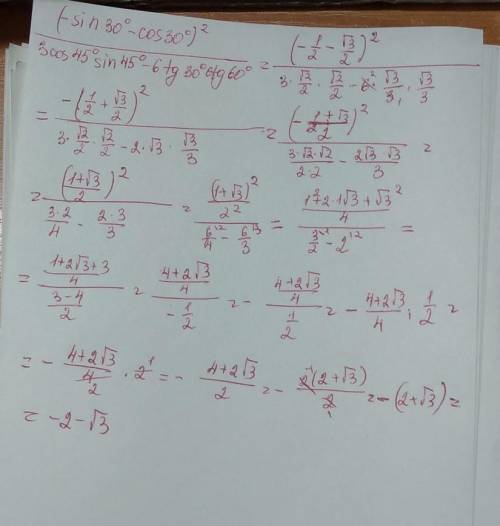 (-sin 30° - cos 30°)² / (3cos 45° sin 45° - 6 tg 30° ctg 60°) = (-1/2 - √3/2)² / (3 · √2/2 · √2/2 - 6² · √3/3₁ · √3/3)
= -(1/2 + √3/2)² / (3 · √2/2 · √2/2 - 2 · √3 · √3/3) = (-(1+√3)/2)² / (3√2·√2/(2·2) - 2√3·√3/3) =
= ((1+√3)/2)² / (3·2/4 - 2·3/3) = ((1+√3)²/2²) / (6/4 - 6/3) = ((1²+2·1√3+√3²)/4) / (3/2 - 2) =
= ((1+2√3+3)/4) / ((3-4)/2) = ((4+2√3)/4) / (-1/2) = - ((4+2√3)/4) / (1/2) = - (4+2√3)/4 : 1/2 =
= - (4+2√3)/4₂ · 2¹ = - (4+2√3)/2 = - 2¹(2+√3)/2₁ = -(2+√3) =
= -2-√3